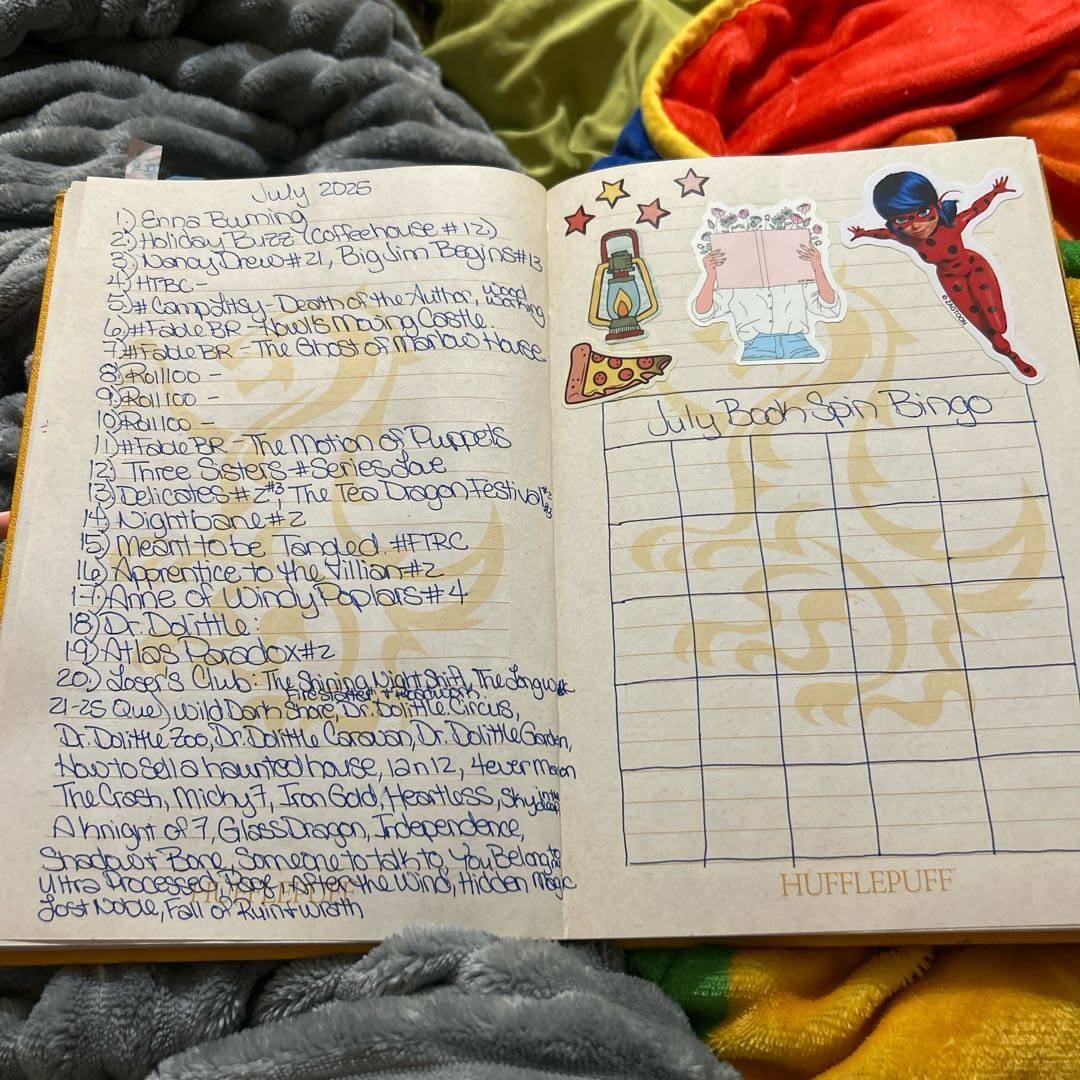 July 2025
1.) Enna Burning
2.) Holiday Buzz (Coffeehouse #12)
3.) Nancy Drew #21, Big Jim Begins #13
4.) HTBC -
5.) #CampLitsy - Death of the Author, Wood Working
6.) #FableBR - Howl's Moving Castle.
7.) #FableBR - The Ghost of Marlow House
8.) Roll100 -
9.) Roll100 -
10.) Roll100 -
11.) #FableBR - The Motion of Puppets
12.) Three Sisters #Serieslove
13.) Delicates #2 #3, The Tea Dragon Festival #2 #3
14.) Nightbane #2
15.) Meant to be Tangled. #FTRC
16.) Apprentice to the Villian #2
17.) Anne of Windy Poplars #4
18.) Dr. Dolittle:
19.) Atlas Paradox #2
20.) Loser's Club: The Shining, Night Shift, The Longwalk
Firestarter + Roadwork.
21-25 Que) Wild Dark Shore, Dr. Dolittle Circus,
Dr. Dolittle Zoo, Dr. Dolittle Caravan, Dr. Dolittle Garden,
How to Sell a haunted house, 1 2n 12, 4ever
The Crash, Micky7, Iron Gold, Heartless, Sky in the deep
A knight of 7, Glass Dragon, Independence,
Shadow + Bone, Someone to talk to, You Belong to
Ultra Processed, After the Wind, Hidden Magic
Lost Noble, Fall of Ruin + Wrath
HUFFLEPUFF
© ZAGTOON
July Book Spin Bingo
HUFFLEPUFF